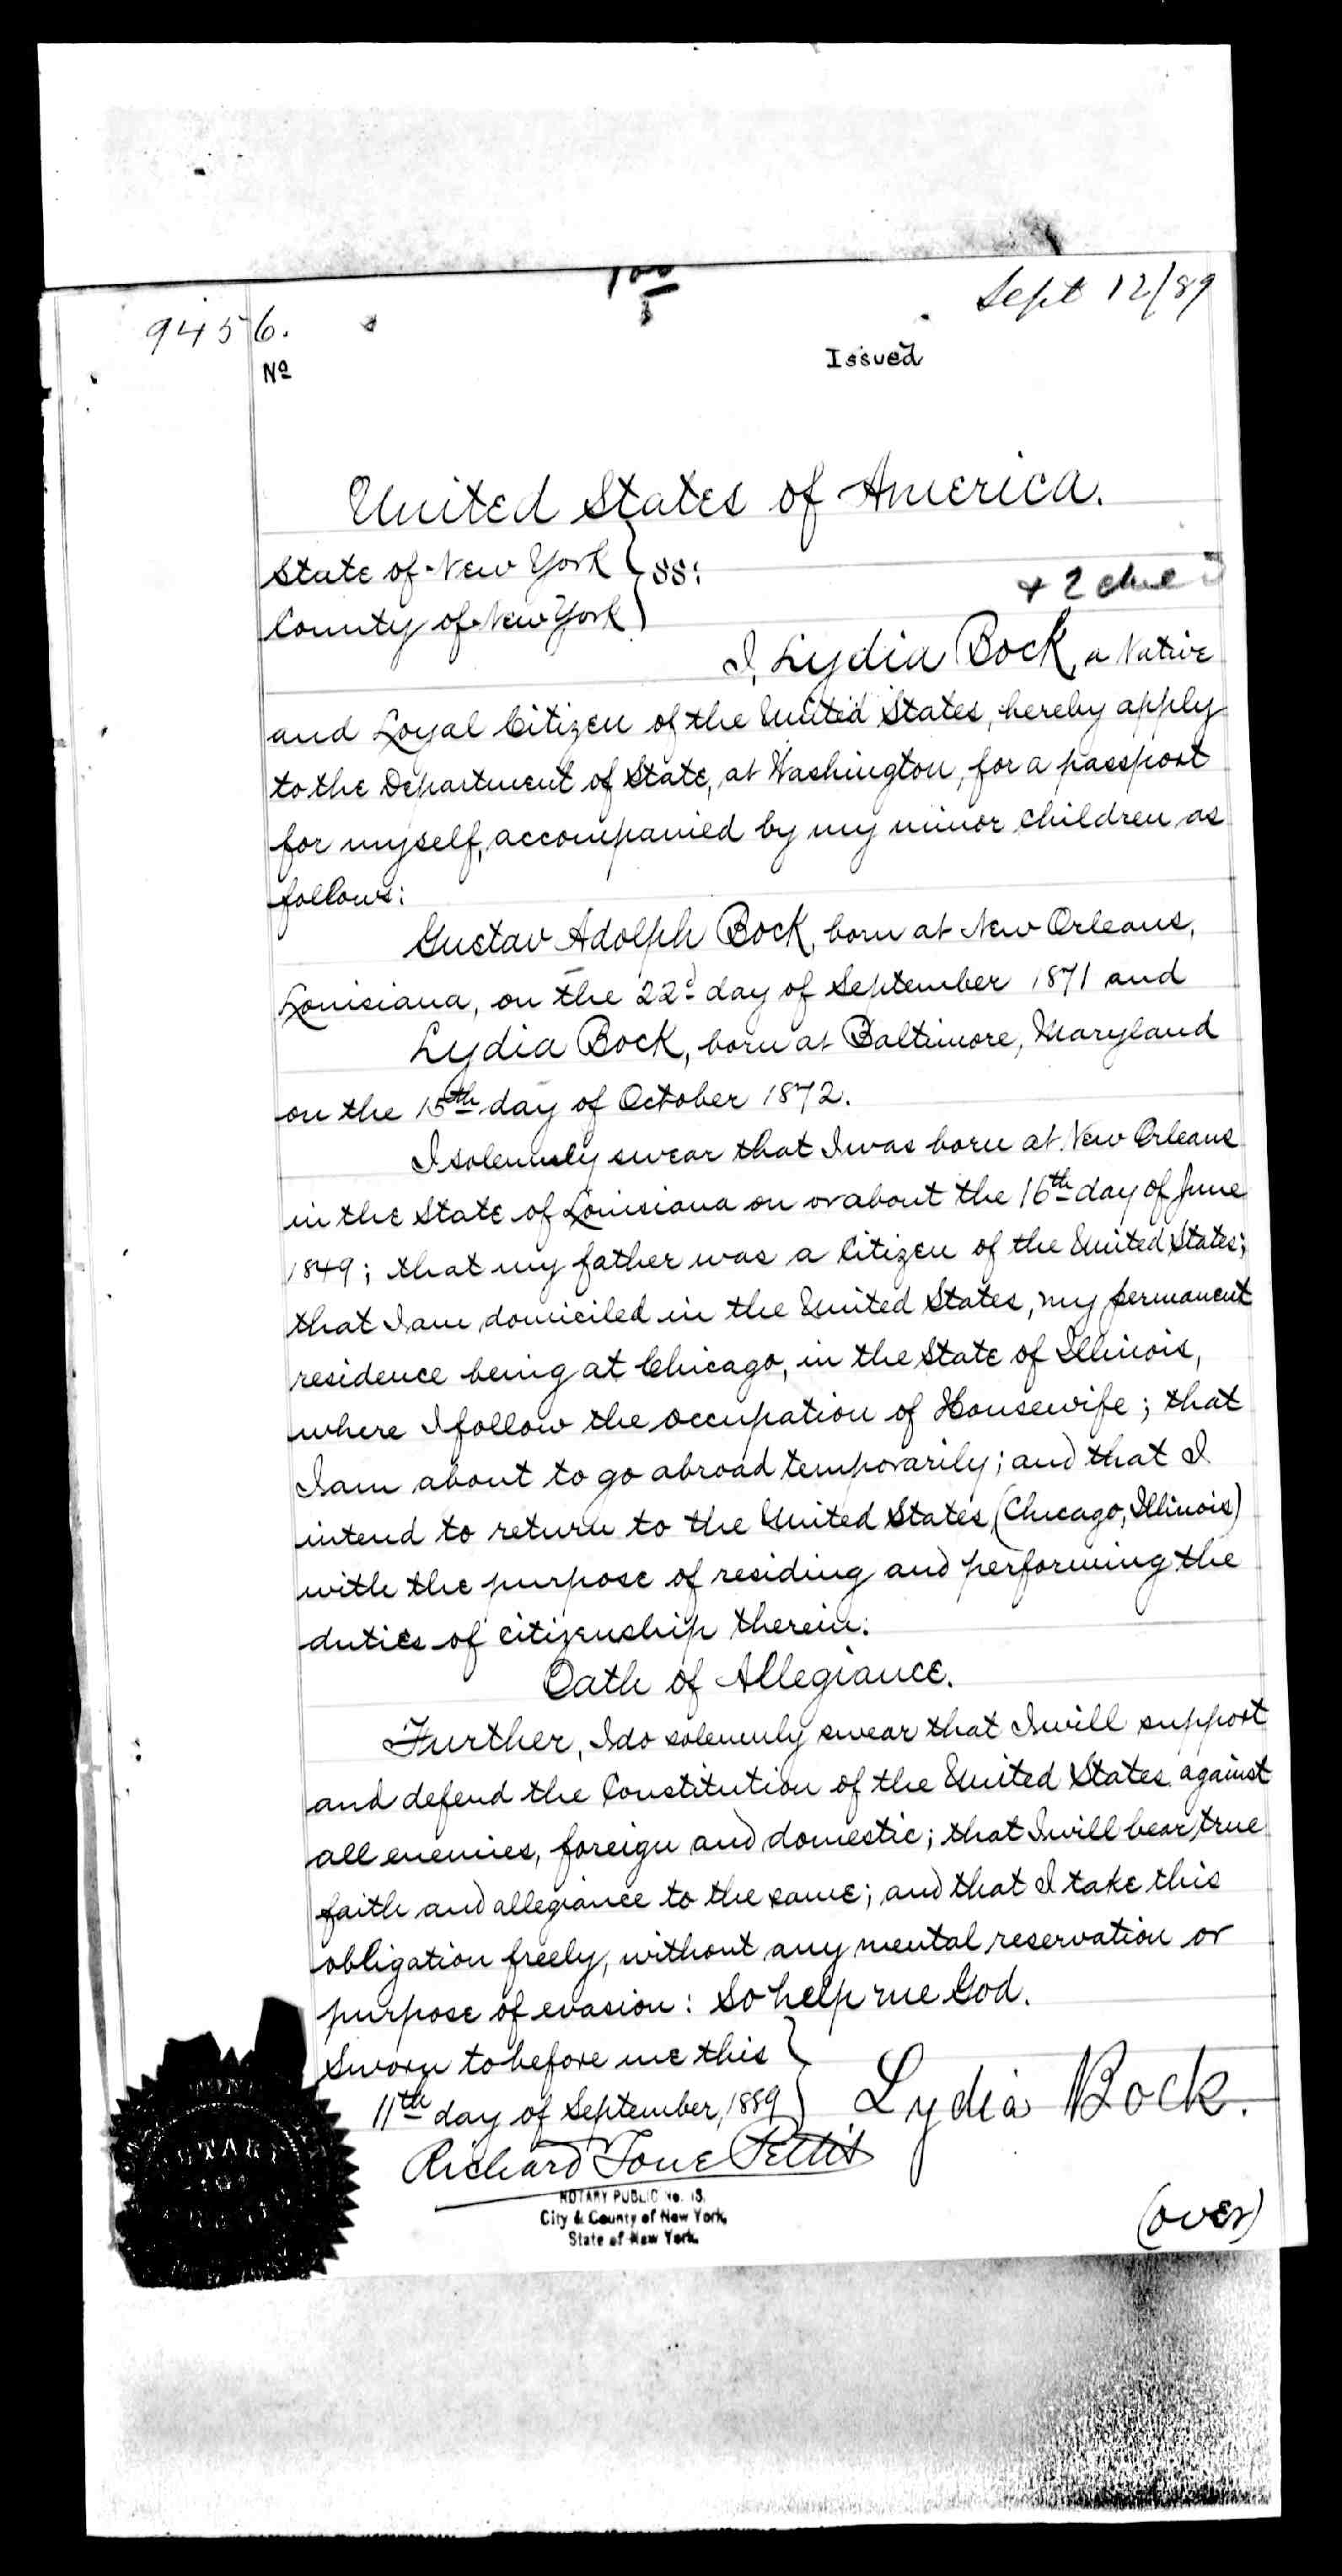 Sept 12/89
9456.
Nº
Issued
United States of America.
State of New York } SS:
County of New York }
+ 2 chil
I, Lydia Bock, a Native
and Loyal Citizen of the United States, hereby apply
to the Department of State, at Washington, for a passport
for myself, accompanied by my minor children as
follows:
Gustav Adolph Bock, born at New Orleans,
Louisiana, on the 22d day of September 1871 and
Lydia Bock, born at Baltimore, Maryland
on the 15th day of October 1872.
I solemnly swear that I was born at New Orleans
in the State of Louisiana on or about the 16th day of June
1849; that my father was a Citizen of the United States;
that I am domiciled in the United States, my permanent
residence being at Chicago, in the State of Illinois,
where I follow the occupation of Housewife; that
I am about to go abroad temporarily; and that I
intend to return to the United States (Chicago, Illinois)
with the purpose of residing and performing the
duties of citizenship therein.
Oath of Allegiance.
Further, I do solemnly swear that I will support
and defend the Constitution of the United States against
all enemies, foreign and domestic; that I will bear true
faith and allegiance to the same; and that I take this
obligation freely, without any mental reservation or
purpose of evasion: So help me God.
Sworn to before me this }
11th day of September, 1889 } Lydia Bock.
Richard Pettit
NOTARY PUBLIC No. 13.
City & County of New York,
State of New York.
NOTARY
(over)